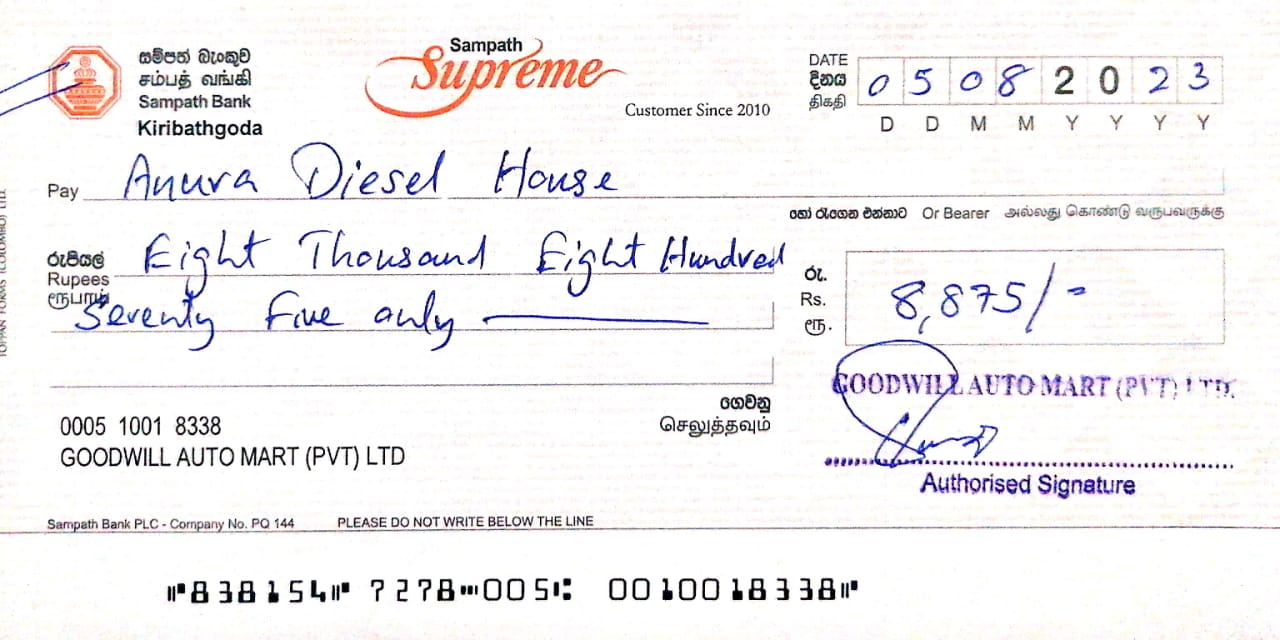 සම්පත් බැංකුව
சம்பத் வங்கி
Sampath Bank
Kiribathgoda
Sampath
Supreme
Customer Since 2010
DATE
දිනය
திகதி
0 5 0 8 2 0 2 3
D D M M Y Y Y Y
Pay Anura Diesel House
හෝ රැගෙන එන්නාට Or Bearer அல்லது கொண்டு வருபவருக்கு
රුපියල්
Rupees
ரூபாய்
Eight Thousand Eight Hundred
Seventy Five only
රු.
Rs.
ரூ.
8,875/-
ගෙවනු
செலுத்தவும்
GOODWILL AUTO MART (PVT) LTD.
0005 1001 8338
GOODWILL AUTO MART (PVT) LTD
Authorised Signature
Sampath Bank PLC - Company No. PQ 144 PLEASE DO NOT WRITE BELOW THE LINE
⑈838154⑈ 7278⑉005⑆ 0010018338⑈